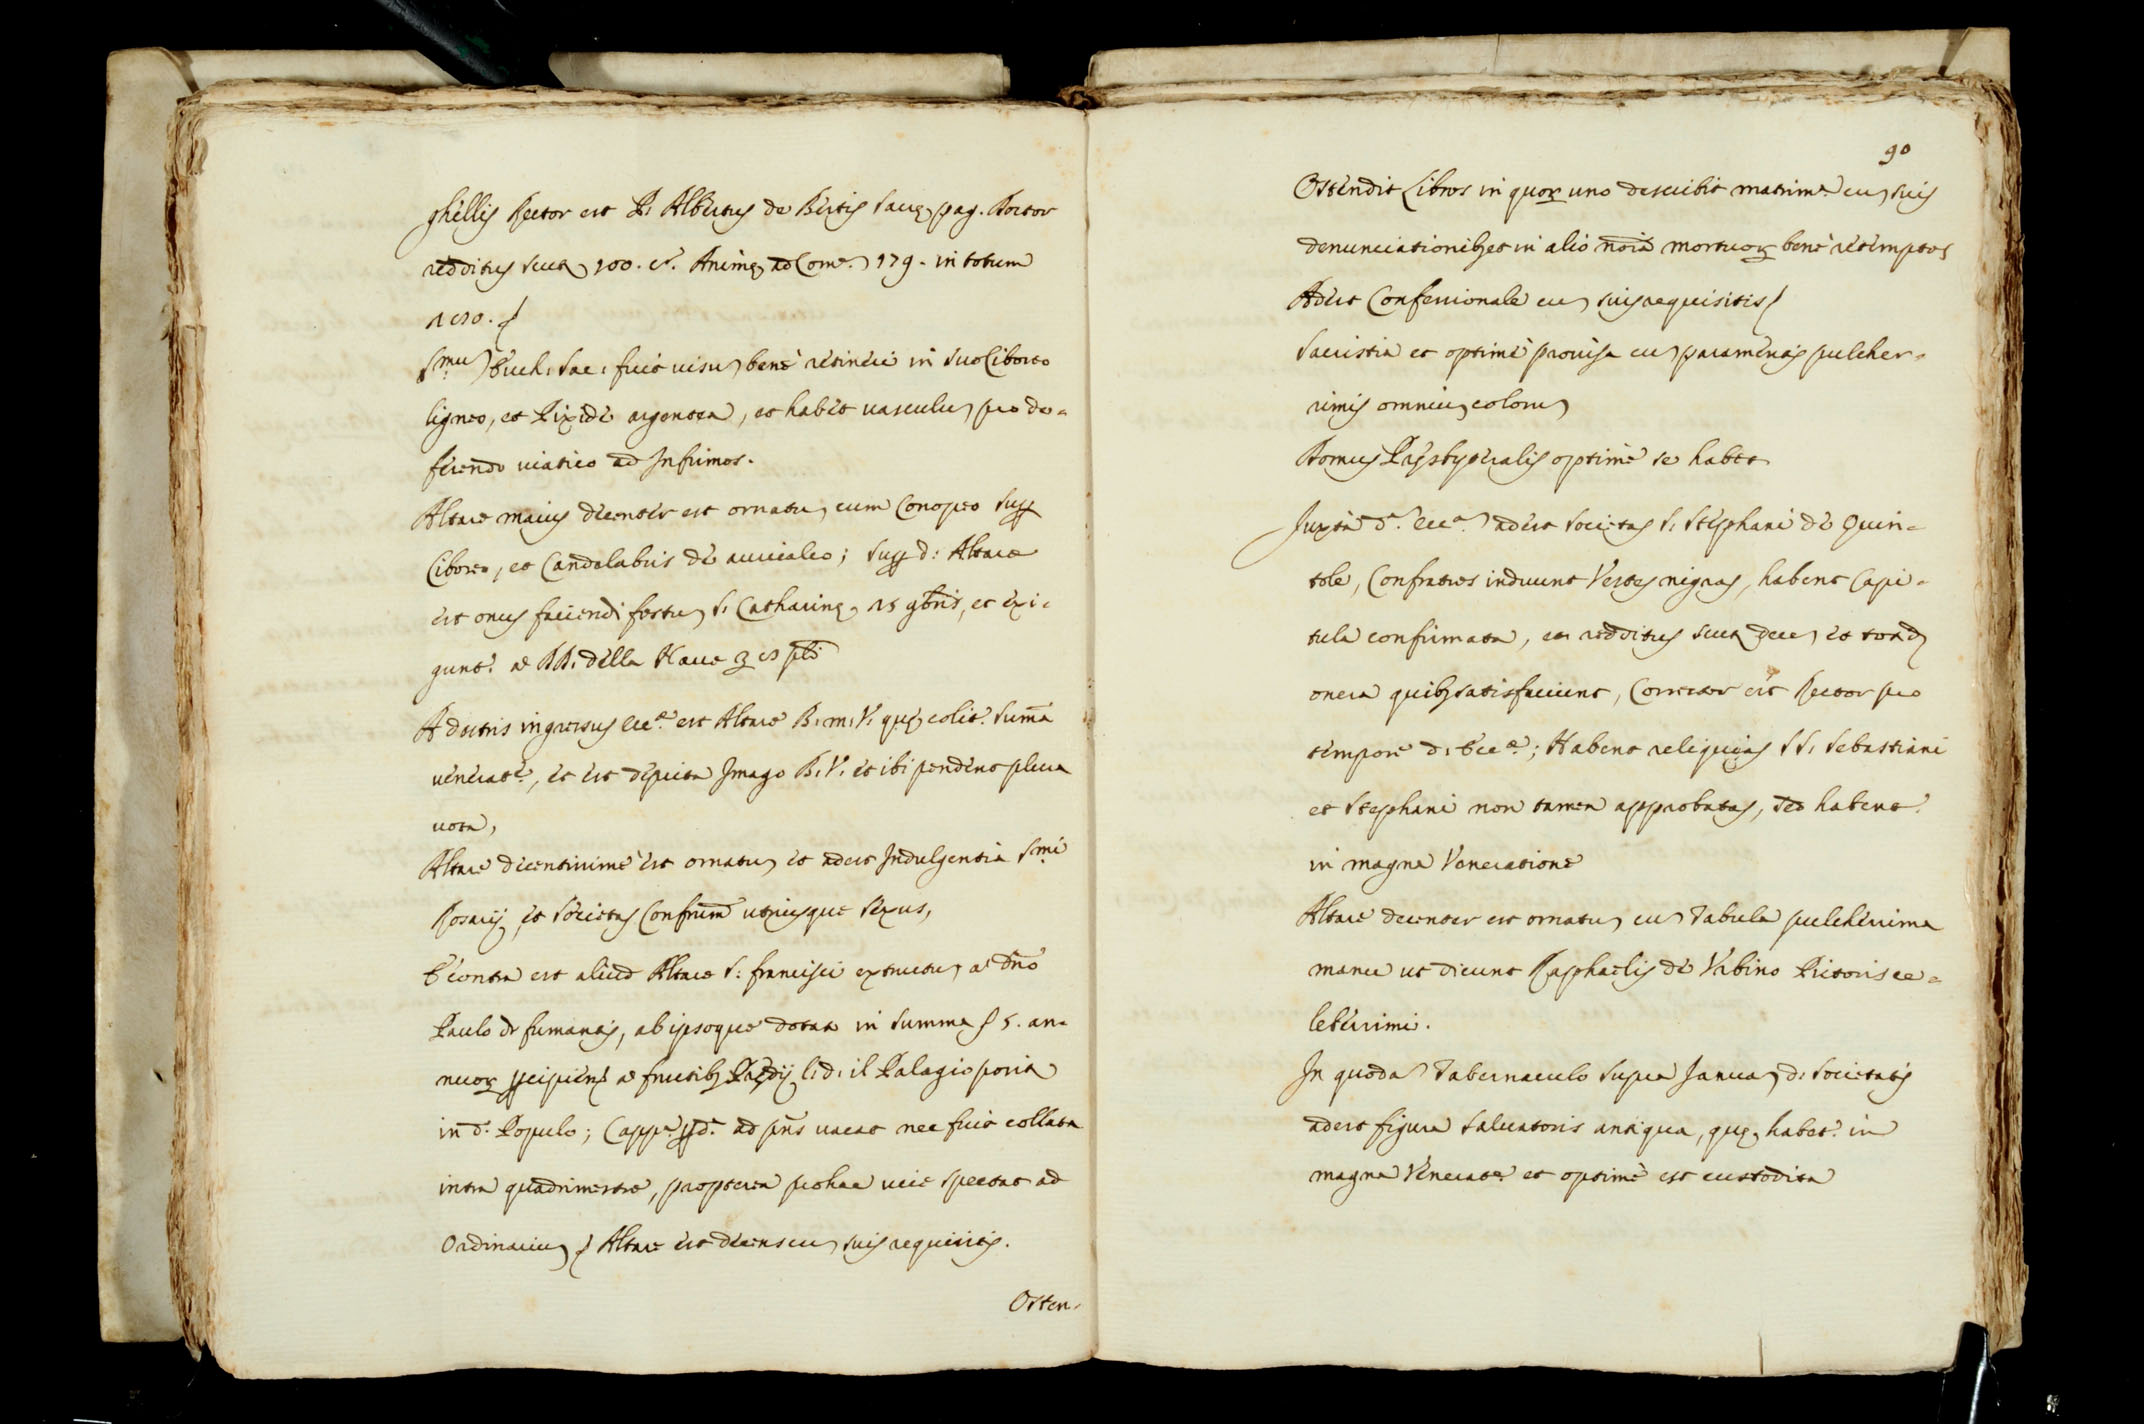 ghellis Rector est P: Albertus de Bertis Sacrę pag. Doctor
redditus scuta 100. cr. Animę ad Com.e 179. in totum
Smu Euch: Sac: fuit visu bene retineri in suo Ciborio
ligneo, et Pixide argentea, et habet vasculu pro de=
ferendo viatico ad Infirmos.
Altare maius decenter est ornatu, cum Conopeo Supr
Ciborio, et Candelabris de auricalco; Supr d: Altare
est onus faciendi festu S: Catharinę 25 9bris, et exi=
gunt.r a RR: della Nave
A dextris ingressus Ecc.e est Altare B: M: V: quę colit.r Summa
venerat.e, et est depicta Imago B: V: et ibi pendent plura
vota,
Altare decentissime est ornatu, et adest Indulgentia Smi
Rosarij, et Societas Confrum utriusque sexus,
E contra est aliud Altare S: Francisci extructu, a Dno
Paulo de fumantis, ab ipsoque dotat in Summa ∫ 5. an=
nuor pcipiend a fructib9 Prędij l: d: il Palagio posita
in d.o Populo; Capp.a pd.a ad pns vacat nec fuit collata
intra quadrimestre, propterea pro hac vice spectat ad
Ordinariu, Altare est decens cu suis requisitis.
Osten=
90
Ostendit Libros in quor uno describit matrim.a cu suis
denunciationib9 et in alio noia mortuor bene retemptos
Adest Confessionale cu suis requisitis
Sacristia est optime provisa cu paramentis pulcher=
rimis omniu coloru
Domus Presbyteralis optime se habet
Juxta d.a Ecc.a adest Societas S: Stephani de Quin=
tole, Confratres induunt Vestes nigras, habent Capi=
tula confirmata, et redditus scuta dece, et totid
onera quib9 satisfaciunt, Corrector est Rector pro
tempore d: Ecc.e; Habent reliquias SS: Sebastiani
et Stephani non tamen approbatas, sed habent.r
in magna Veneratione
Altare decenter est ornatu, cu Tabula pulcherrima
manu ut dicunt Raphaelis de Urbino Pictoris ce=
leberrimi.
In quoda Tabernaculo supra Janua d: Societatis
adest figura Salvatoris antiqua, quę habet.r in
magna Venerat.e et optime est custodita